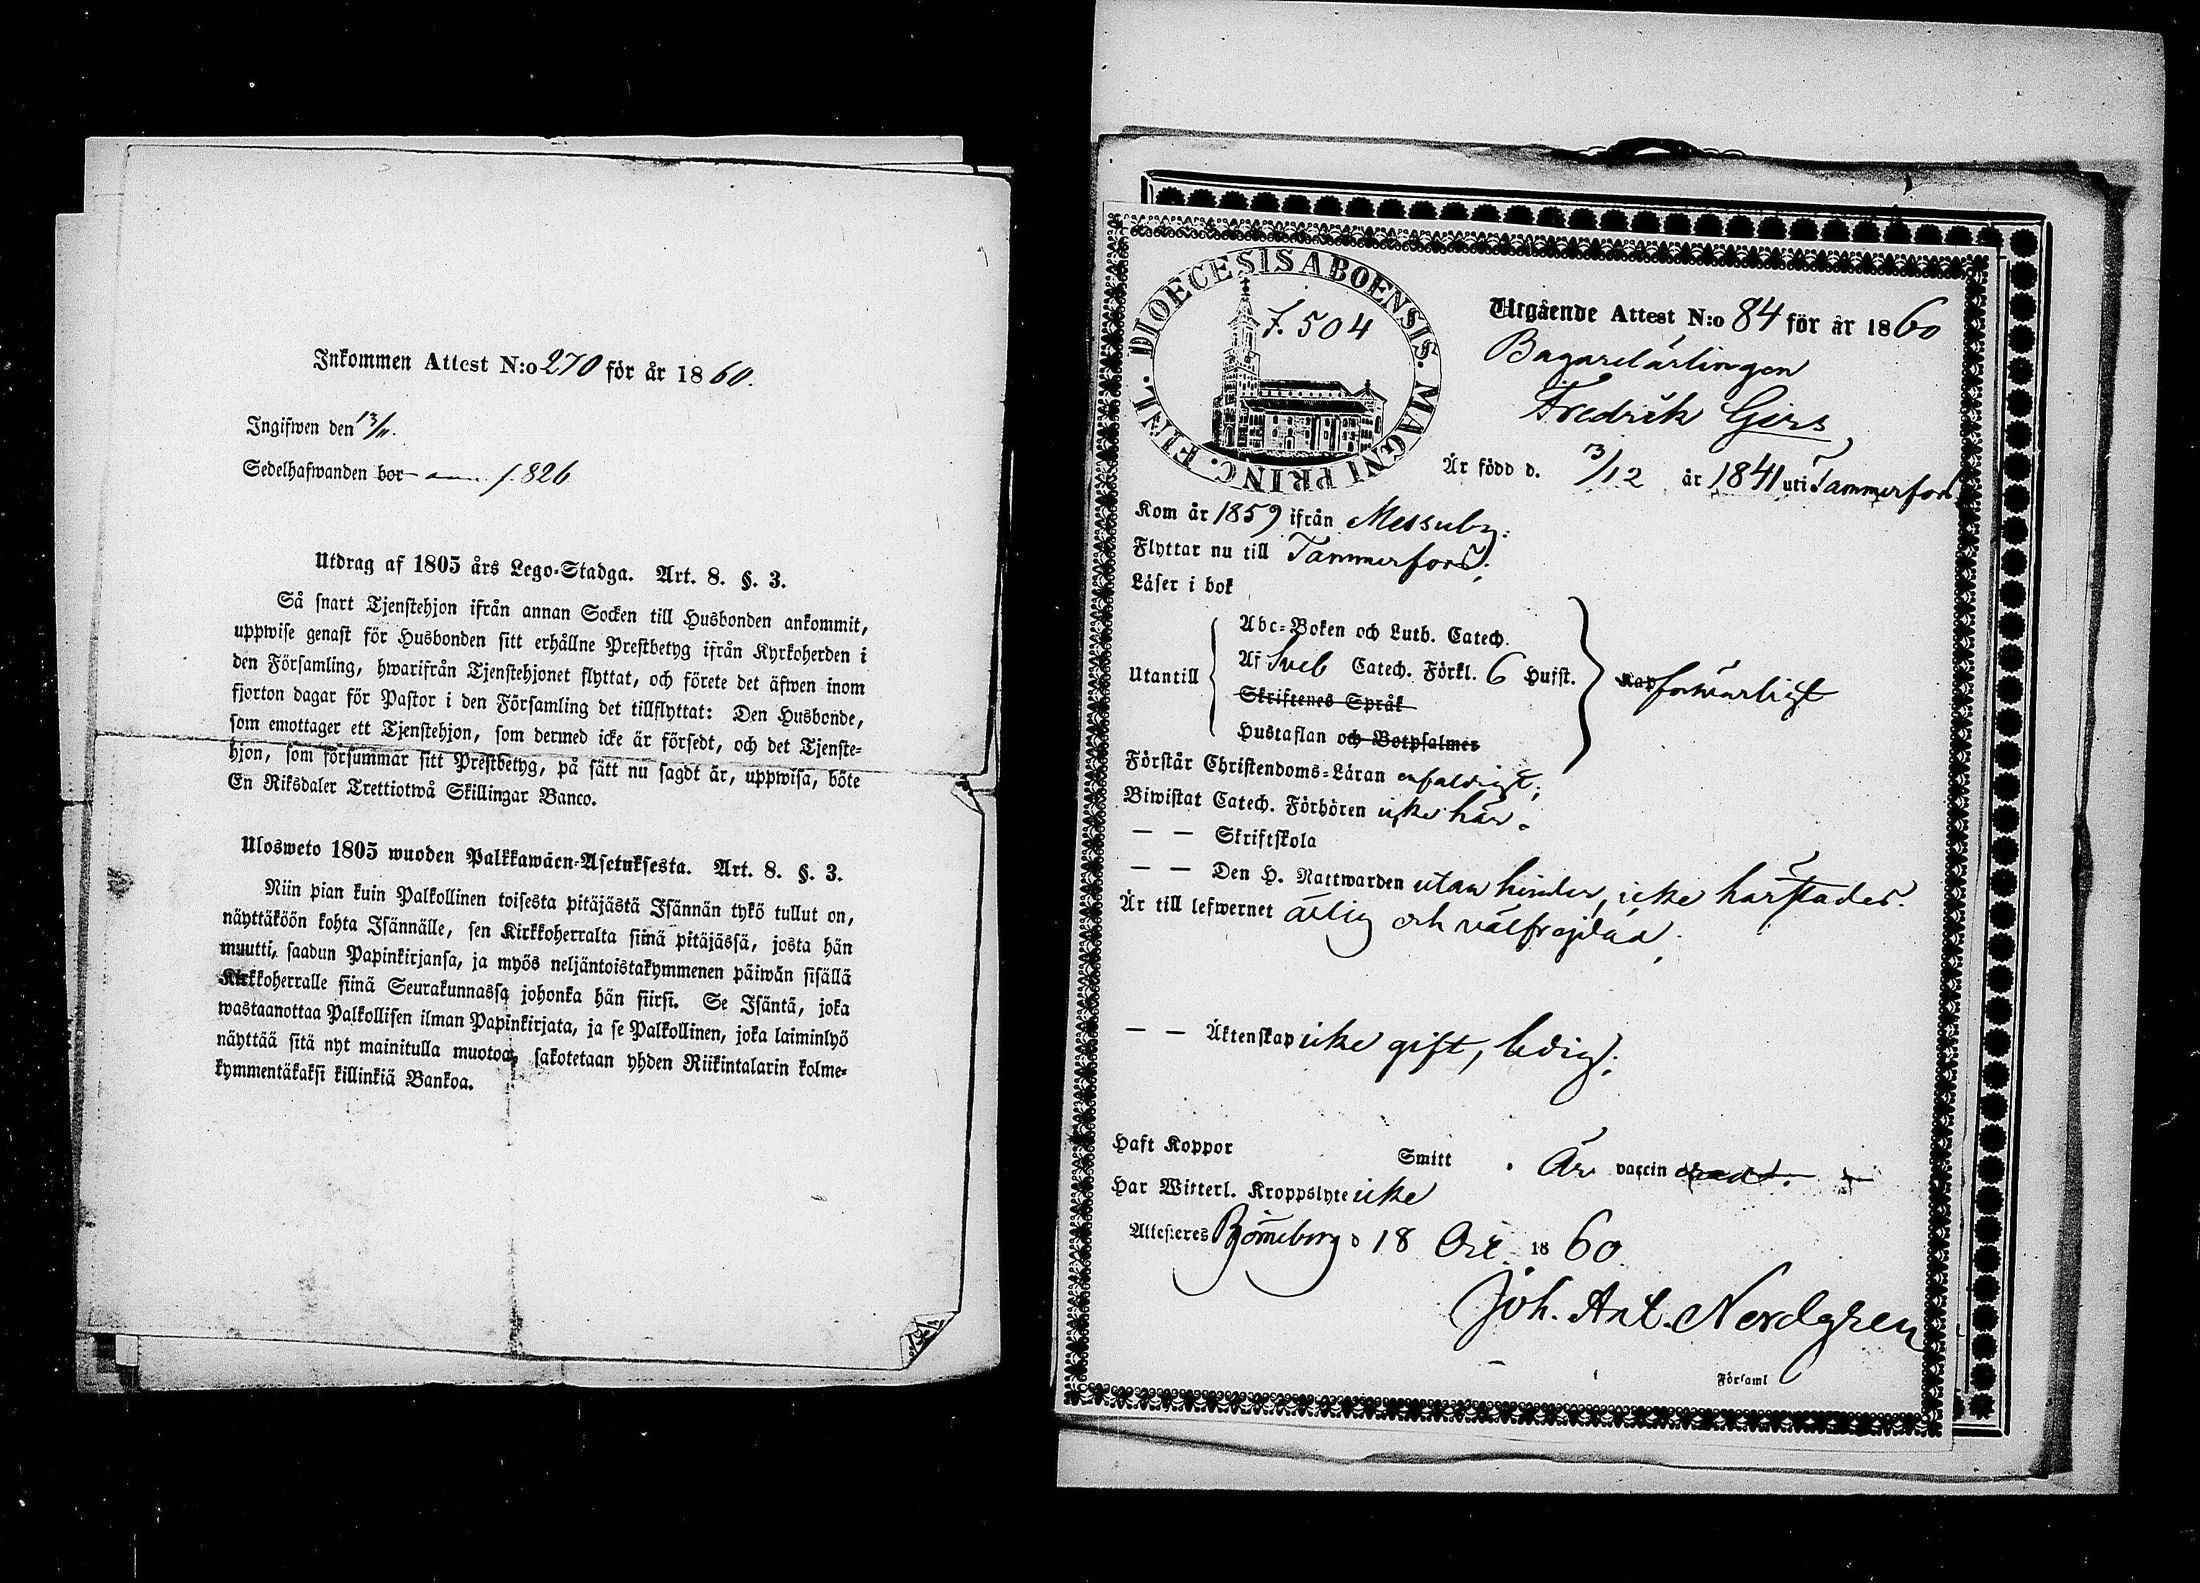 Inkommen Attest N:o 270 för år 1860.
Ingifwen den 13/11.
Sedelhafwanden bor f. 826
Utdrag af 1805 års Lego-Stadga. Art. 8. §. 3.
Så snart Tjenstehjon ifrån annan Socken till Husbonden ankommit,
uppwise genast för Husbonden sitt erhållne Prestbetyg ifrån Kyrkoherden i
den Församling, hwarifrån Tjenstehjonet flyttat, och förete det äfwen inom
fjorton dagar för Pastor i den Församling det tillflyttat: Den Husbonde,
som emottager ett Tjenstehjon, som dermed icke är försedt, och det Tjenste-
hjon, som försummar sitt Prestbetyg, på sätt nu sagdt är, uppwisa, böte
En Riksdaler Trettiotwå Skillingar Banco.
Ulosweto 1805 wuoden Palkkawäen-Asetuksesta. Art. 8. §. 3.
Niin pian kuin Palkollinen toisesta pitäjästä Isännän tykö tullut on,
näyttäköön kohta Isännälle, sen Kirkkoherralta siinä pitäjässä, josta hän
muutti, saadun Papinkirjansa, ja myös neljäntoistakymmenen päiwän sisällä
Kirkkoherralle siinä Seurakunnassa johonka hän siirsi. Se Isäntä, joka
wastaanottaa Palkollisen ilman Papinkirjata, ja se Palkollinen, joka laiminlyö
näyttää sitä nyt mainitulla muotoa, sakotetaan yhden Riikintalarin kolme-
kymmentäkaksi killinkiä Bankoa.
DIOECESIS ABOENSIS. MAGNI PRINC. FINL.
f. 504
Utgående Attest N:o 84 för år 1860
Bagarelärlingen
Fredrik Girs,
Är född d. 13/12 år 1841 uti Tammerfors,
Kom år 1859 ifrån Messuby:
Flyttar nu till Tammerfors;
Läser i bok
Abc-Boken och Luth. Catech.
Utantill Af Sveb Catech. Förkl. 6 Hufst. Kap försvarligt
Skriftenes Språk
Hustaflan och Botpsalmer
Förstår Christendoms-Läran enfaldigt;
Biwistat Catech. Förhören icke här.
— — Skriftskola
— — Den H. Nattwarden utan hinder, icke härstädes.
Är till lefwernet ärlig och välfrejdad;
— — Äktenskap icke gift, ledig;
Haft Koppor Smitt . Är vaccin erad.
Har Witterl. Kroppslyte icke
Attesteres Björneborg d 18 1860
Joh. Ant. Nordgren
Församl